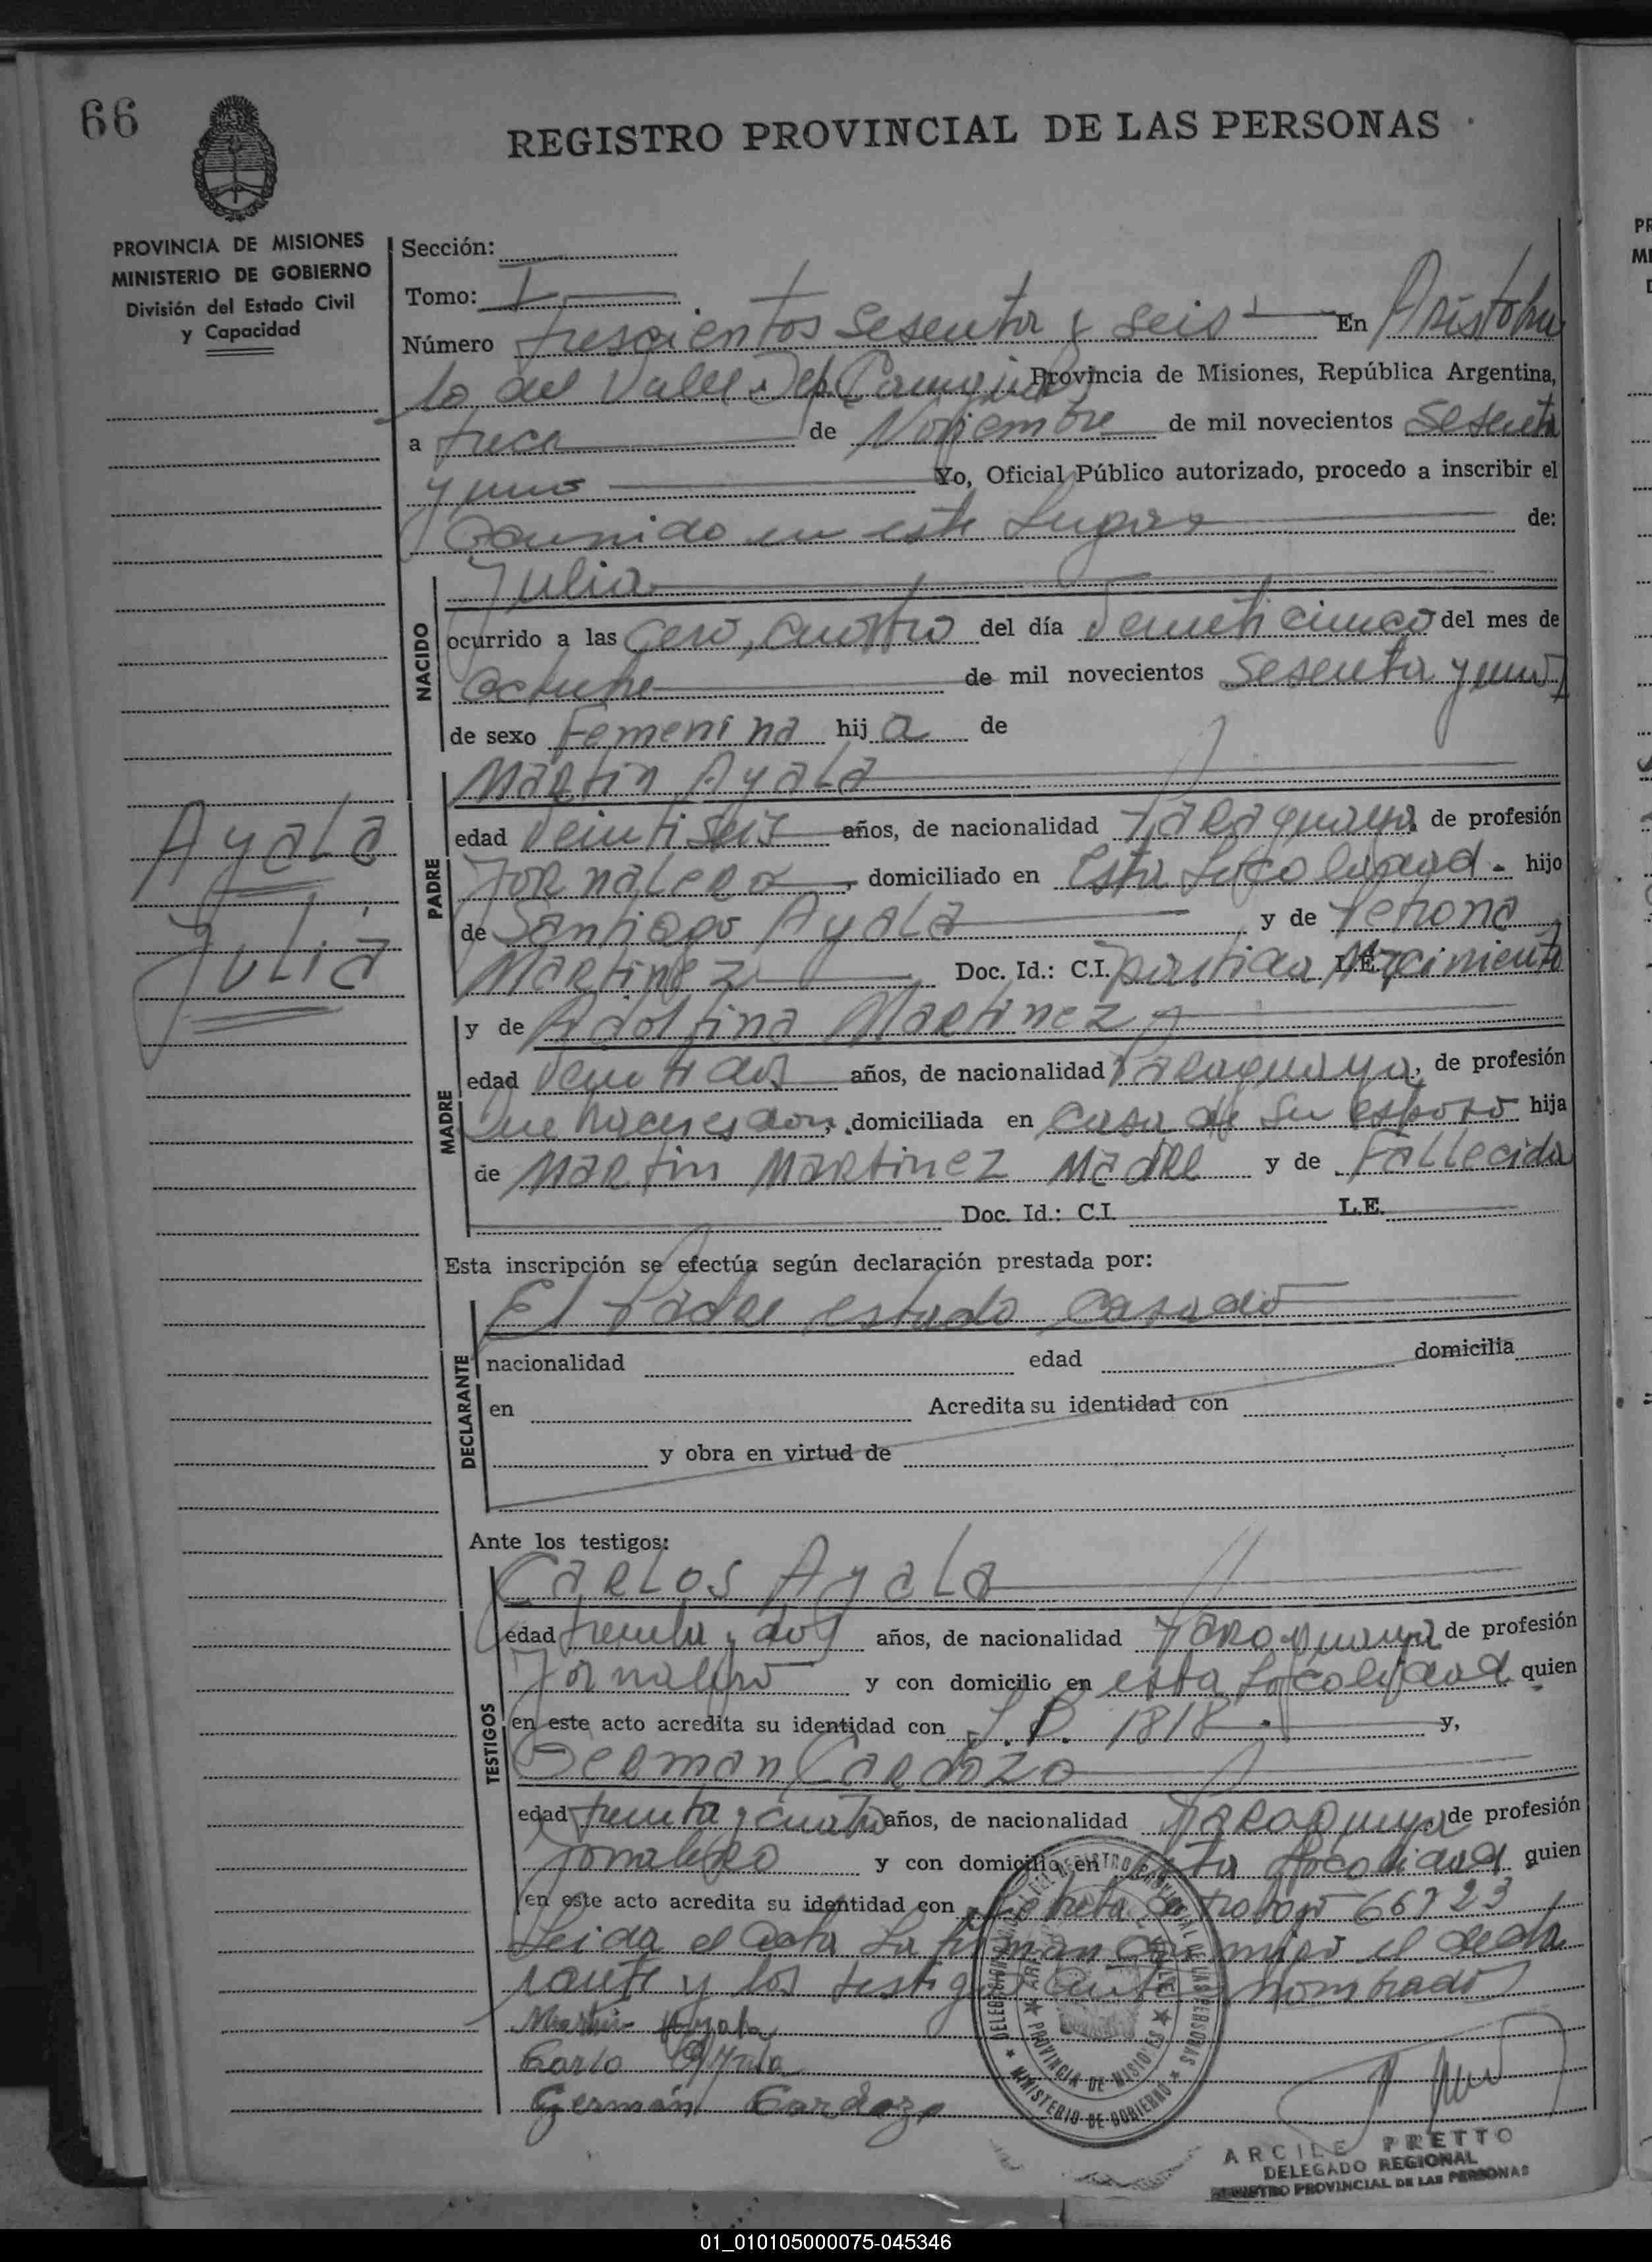 66
REGISTRO PROVINCIAL DE LAS PERSONAS
PROVINCIA DE MISIONES
MINISTERIO DE GOBIERNO
División del Estado Civil
y Capacidad
Sección:
Tomo: I
Número trescientos sesenta y seis En Aristobu
lo del Valle Dep. Provincia de Misiones, República Argentina,
a trece de Noviembre de mil novecientos sesenta
y uno Yo, Oficial Público autorizado, procedo a inscribir el
en este Lugar de:
NACIDO
Julia
ocurrido a las cero, cuatro del día Veinticinco del mes de
octubre de mil novecientos sesenta y uno
de sexo Femenina hij a de
PADRE
Martin Ayala
edad Veintiseis años, de nacionalidad Paraguaya de profesión
Jornalero, domiciliado en Esta Localidad. hijo
de Santiago Ayala y de Petrona
Martinez Doc. Id.: C.I. partida Nacimiento L.E.
Ayala
Julia
MADRE
y de Adolfina Martinez
edad Veintidos años, de nacionalidad Paraguaya, de profesión
Que haceres dom, domiciliada en casa de su esposo hija
de Martin Martinez Madre y de Fallecida
Doc. Id.: C.I. L.E.
Esta inscripción se efectúa según declaración prestada por:
DECLARANTE
El Padre estado casado
nacionalidad edad domicilia
en Acredita su identidad con
y obra en virtud de
Ante los testigos:
TESTIGOS
Carlos Ayala
edad treinta y dos años, de nacionalidad Paraguaya de profesión
Jornalero y con domicilio en esta Localidad quien
en este acto acredita su identidad con 1818 y,
German Cardozo
edad treinta y cuatro años, de nacionalidad Paraguaya de profesión
Jornalero y con domicilio en esta Localidad quien
en este acto acredita su identidad con Libreta de trabajo 66723
Leida el Acta La firman conmigo el decla
rante y los testigos antes Nombrados
Martin Ayala
Carlo Ayala
Germán Cardozo
REGISTRO PROVINCIAL DE LAS PERSONAS
PROVINCIA DE MISIONES
MINISTERIO DE GOBIERNO
ARCILE PRETTO
DELEGADO REGIONAL
REGISTRO PROVINCIAL DE LAS PERSONAS
01_010105000075-045346